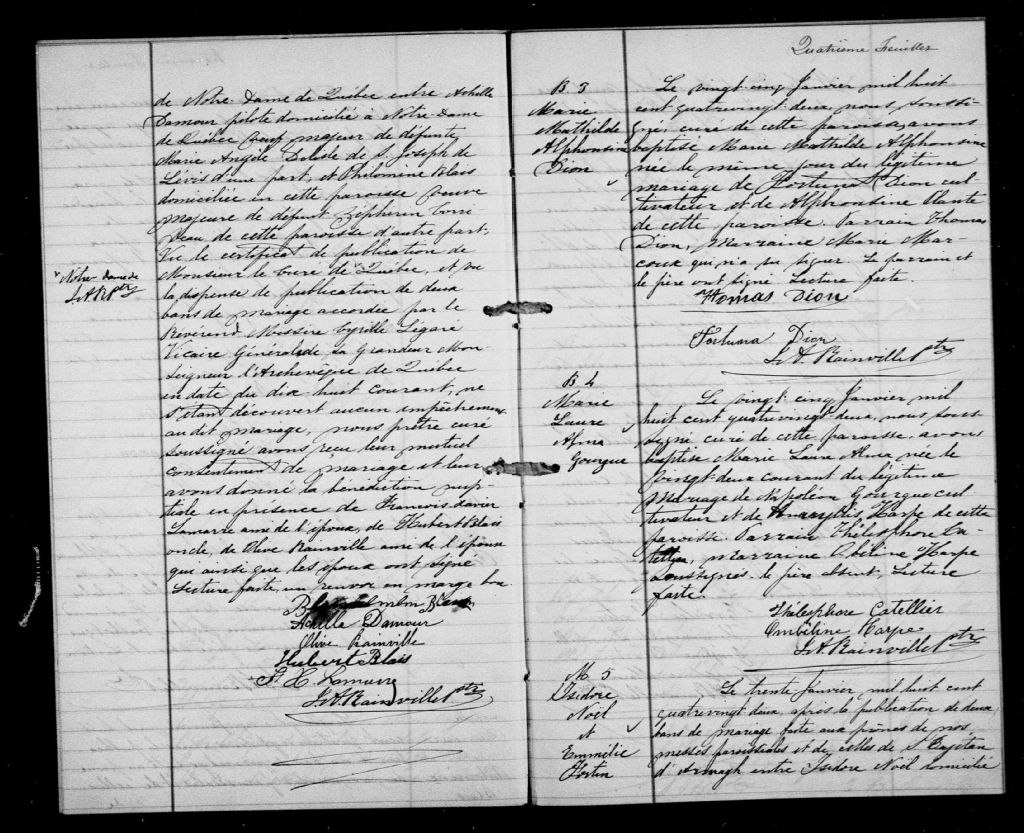 de Notre Dame de Québec entre Achille
Damour pilote domicilié à Notre Dame
de Québec veuf majeur de défunte
Marie Angèle Delisle de S. Joseph de
Lévis d'une part, et Philomène Blais
domiciliée en cette paroisse veuve
majeure de défunt Zépherin
de cette paroisse d'autre part,
Vu le certificat de publication de
Monsieur le Curé de Québec, et vu
la dispense de publication de deux
bans de mariage accordée par le
Révérend Messire Cyrille Légaré
Vicaire Général de Sa Grandeur Mon-
seigneur l'Archevêque de Québec
en date du dix huit courant, ne
s'étant découvert aucun empêchement
au dit mariage, nous prêtre curé
soussigné avons reçu leur mutuel
consentement de mariage et leur
avons donné la bénédiction nup-
tiale en présence de François Xavier
Lamarre ami de l'époux, de Hubert Blais
oncle, de Olive Rainville amie de l'épouse
qui ainsi que les époux ont signé
Lecture faite, un renvoi en marge bon
Achille Damour
Olive Rainville
Hubert Blais
F. X. Lamarre
J. A. Rainville Ptr
Notre Dame de
J. A. R. Ptr
Quatrième Feuillet
B 3
Marie
Mathilde
Alphonsine
Dion
Le vingt-cinq Janvier mil huit
cent quatrevingt-deux, nous soussi-
gné, curé de cette paroisse, avons
baptisé Marie Mathilde Alphonsine
née le même jour du légitime
mariage de Fortunat Dion cul
tivateur et de Alphonsine Plante
de cette paroisse. Parrain Thomas
Dion, Marraine Marie Mar-
coux qui n'a pu signer. Le parrain et
le père ont signé Lecture faite.
Thomas Dion
Fortuna Dion
J. A. Rainville Ptr
B 4
Marie
Laure
Alma
Gourgue
Le vingt-cinq Janvier mil
huit cent quatrevingt-deux, nous sous
signé curé de cette paroisse, avons
baptisé Marie Laure Alma née le
vingt-deux courant du légitime
mariage de Napoléon Gourgue cul
tivateur et de Amaryllis Harpe de cette
paroisse Parrain Thélesphore Ca-
tellier, marraine Harpe
soussignés. le père absent, Lecture
faite.
Thélesphore Catellier
Ombéline Harpe
J. A. Rainville Ptr
M. 5
Isidore
Noël
et
Emmélie
Fortin
Le trente Janvier mil huit cent
quatrevingt deux, après la publication de deux
bans de mariage faite aux prônes de nos
messes paroissiales et de celles de S. Cajétan
d'Armagh entre Isidore Noël domicilié